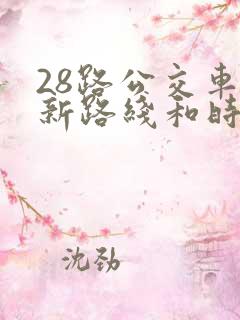 28路公交車
新路綫和時
沈劲